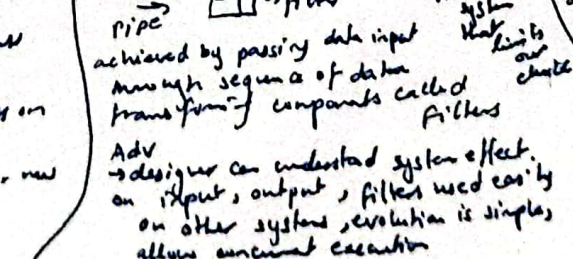 pipe
filter
achieved by passing data input
through sequence of data
transforming components called
filters
system
that
limits
our
on
new
Adv
→ designer can understand system effect.
on input, output, filters used easily
on other systems, evolution is simple,
allows concurrent execution